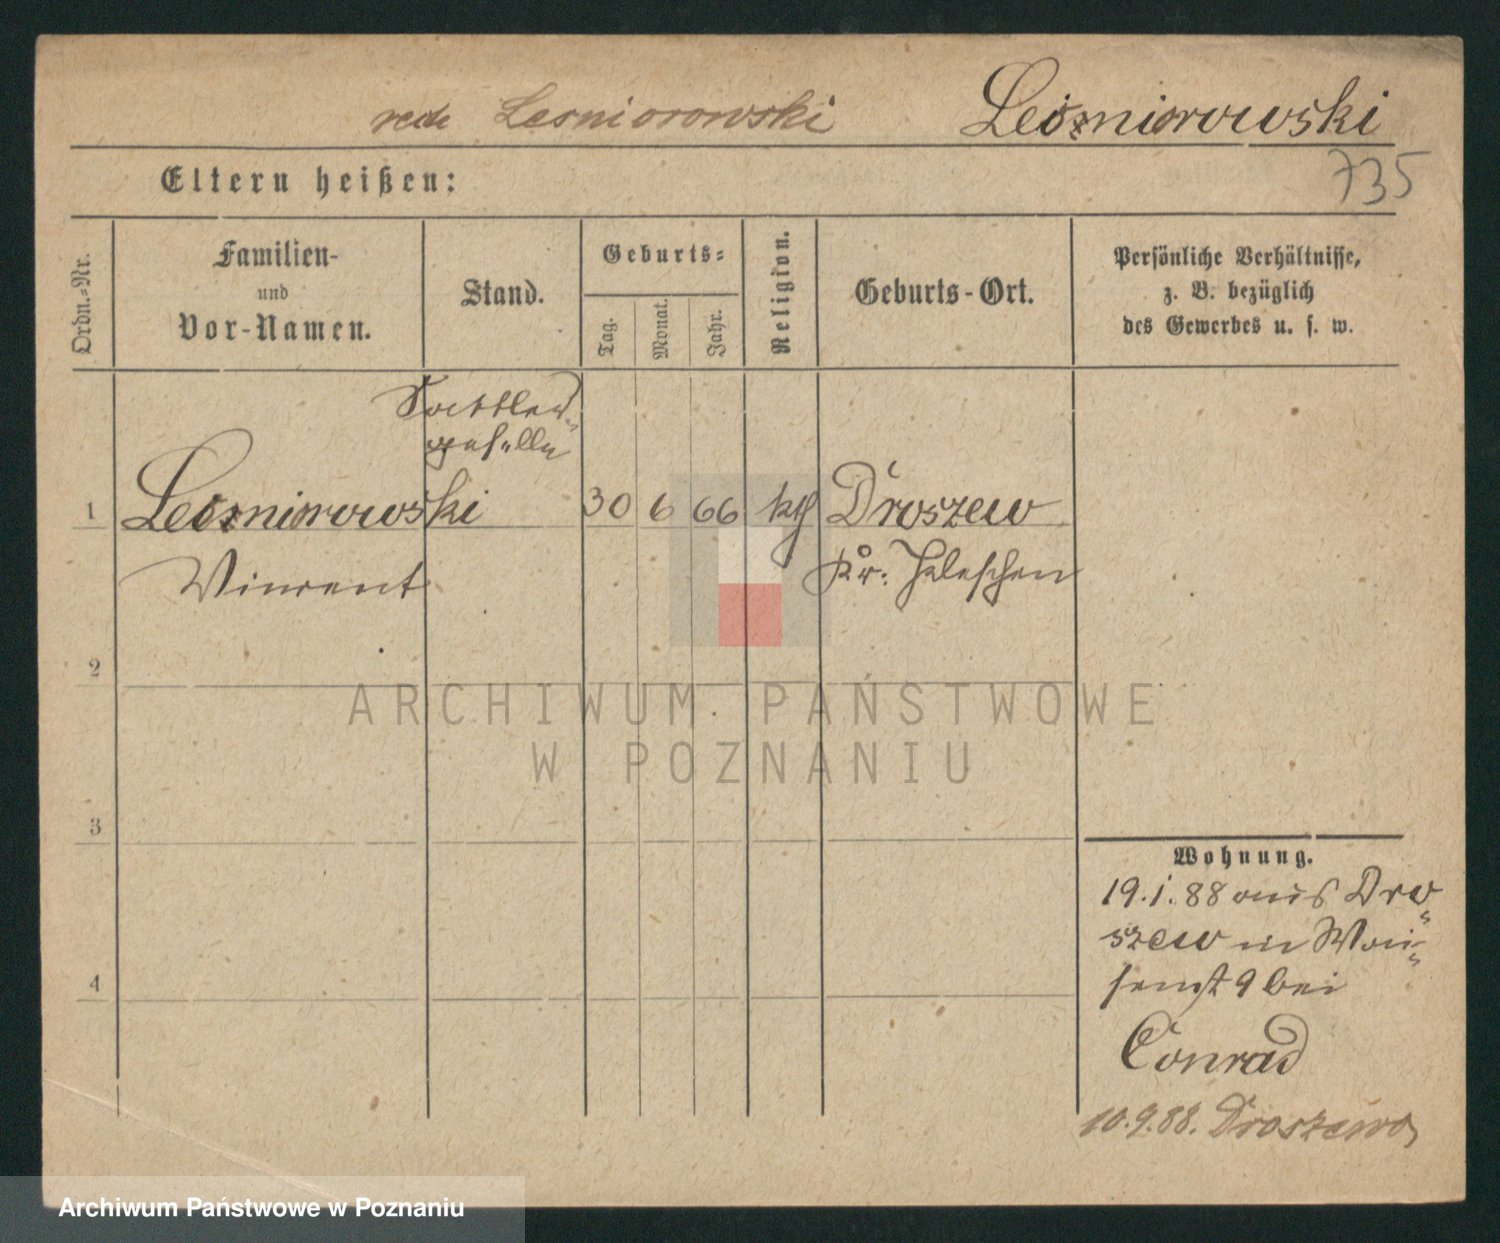 recte Lesniorowski Leisniorowski
735
Eltern heißen:
Ordn.-Nr.
Familien-
und
Vor-Namen.
Stand.
Geburts-
Tag.
Monat.
Jahr.
Religion.
Geburts-Ort.
Persönliche Verhältnisse,
z. B. bezüglich
des Gewerbes u. s. w.
Sattler-
geselle
1 Leisniorowski 30 6 66 kth Droszew
Vincent Kr. Pleschen
2
3
4
Wohnung.
19.1.88 aus Dro-
szew in Wai-
senst 9 bei
Conrad
10.9.88. Droszewo
ARCHIWUM PAŃSTWOWE
W POZNANIU
Archiwum Państwowe w Poznaniu